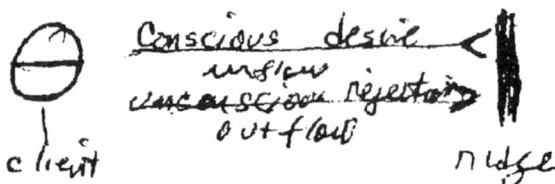 Conscious desire
inflow
unconscious rejection
outflow
client
ridge